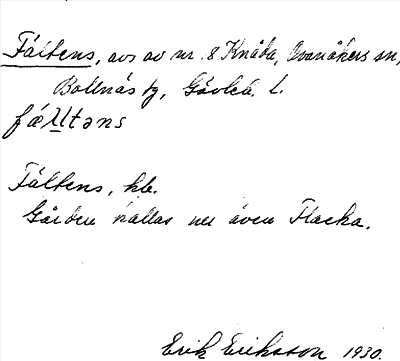 Fältens, avs av nr. 8 Knåda, Ovanåkers sn,
Bollnäs tg, Gävleb. l.
fæլltəns
Fältens, hb.
Gården kallas nu även Flacka.
Erik Eriksson 1930.